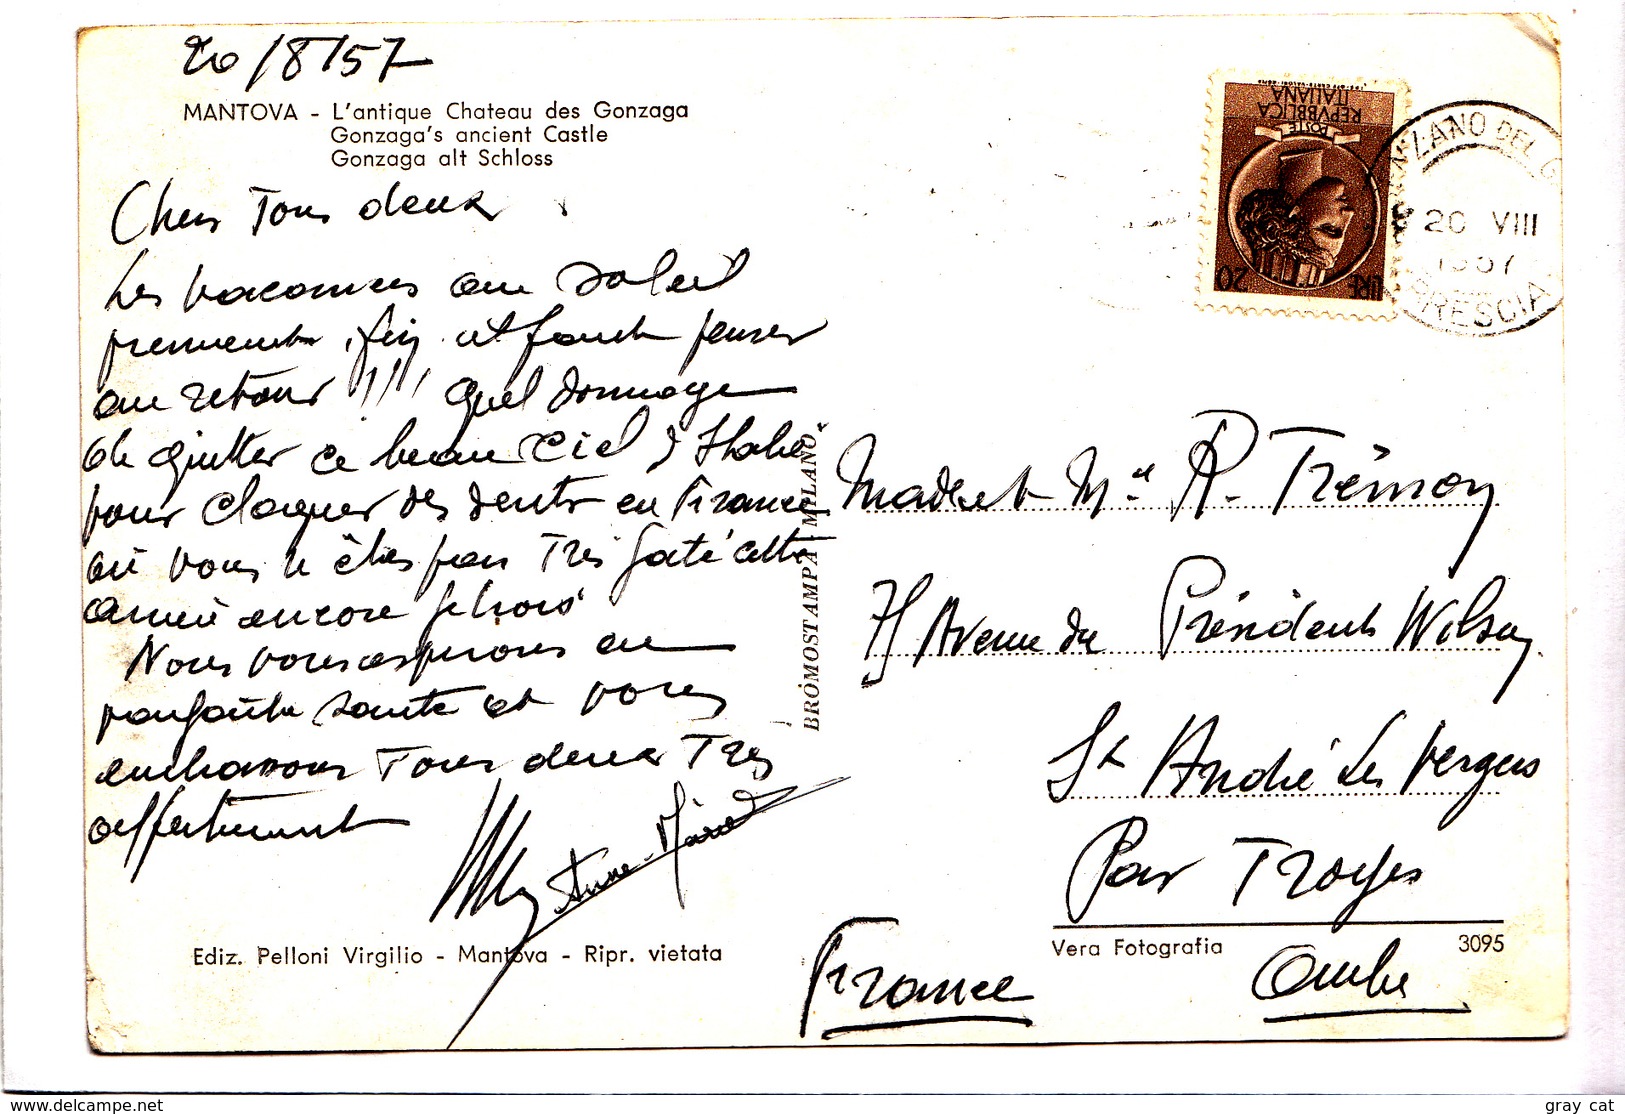 20/8/57
MANTOVA - L'antique Chateau des Gonzaga
Gonzaga's ancient Castle
Gonzaga alt Schloss
Chers Tous deux
Les vacances au soleil
prennent fin. il faut penser
au retour !!! quel dommage
de quitter ce beau ciel d'Italie
pour claquer des dents en France
où vous n'êtes pas très gâtés cette
année encore je crois
Nous vous espérons en
parfaite santé et vous
embrassons Tous deux Très
affectueusement
Anne-Marie
Ediz. Pelloni Virgilio - Mantova - Ripr. vietata
BROMOSTAMPA MILANO
POSTE
REPVBBLICA
ITALIANA
LIRE 20
MILANO DEL G
20 VIII
1957
BRESCIA
Mr et Me R. Trémon
71 Avenue du Président Wilson
St André Les Vergers
Par Troyes
Vera Fotografia 3095
Aube
France
www.delcampe.net
gray cat